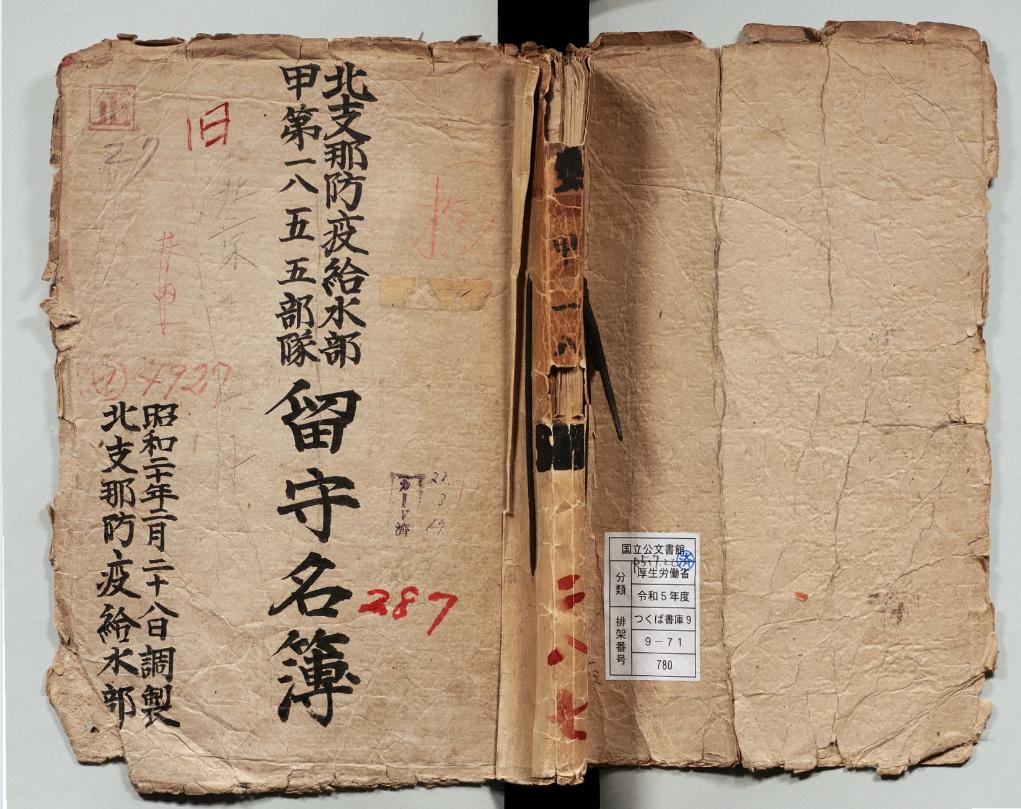 北支那防疫給水部
甲第一八五五部隊
留守名簿
昭和二十年二月二十八日調製
北支那防疫給水部
旧
27
北京
4927
287
カード済
甲一八
二八七
国立公文書館
分類
厚生労働省
令和5年度
排架番号
つくば書庫9
9-71
780
済